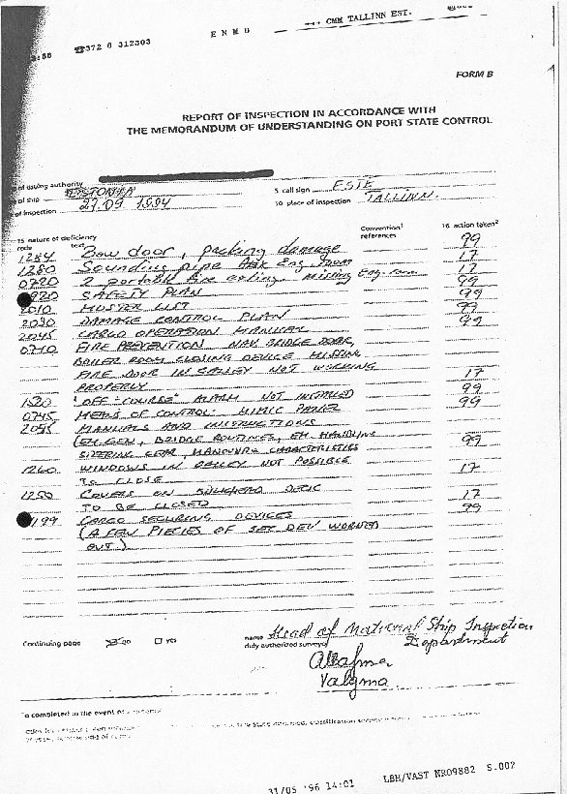 :58 ☎372 6 312303 E N M B CMM TALLINN EST.
FORM B
REPORT OF INSPECTION IN ACCORDANCE WITH
THE MEMORANDUM OF UNDERSTANDING ON PORT STATE CONTROL
of issuing authority
of ship ESTONIA 5 call sign ESTE
of inspection 27.09 1994 10 place of inspection TALLINN.
15 nature of deficiency Convention¹ 16 action taken²
code text references
1284 Bow door, packing damage 99
1280 Sounding pipe eng. room 17
0720 2 portable fire exting. missing eng. room 17
920 SAFETY PLAN 99
2010 MUSTER LIST 99
2030 DAMAGE CONTROL PLAN 99
2045 CARGO OPERATION MANUAL 99
0710 FIRE PREVENTION NAV BRIDGE DOOR,
BOILER ROOM CLOSING DEVICE MISSING
FIRE DOOR IN GALLEY NOT WORKING
PROPERLY 17
"OFF-COURSE" ALARM NOT INSTALLED 99
0745 MEANS OF CONTROL: MIMIC PANEL 99
MANUALS AND INSTRUCTIONS
(EM. GEN, BRIDGE ROUTINES, EM. HANDLING
STEERING GEAR, MANOUVR. CHARACTERISTICS 99
1260 WINDOWS IN GALLEY NOT POSSIBLE
TO CLOSE 17
1250 COVERS ON BULKHEAD DECK
TO BE CLOSED 17
199 CARGO SECURING DEVICES 99
(A FEW PIECES OF SEC DEV WORNED
OUT)
Continuing page no yes name Head of National Ship Inspection
duly authorized surveyor Department
Valgma
completed in the event of a
31/05 '96 14:01 LBH/VAST NR09882 S.002